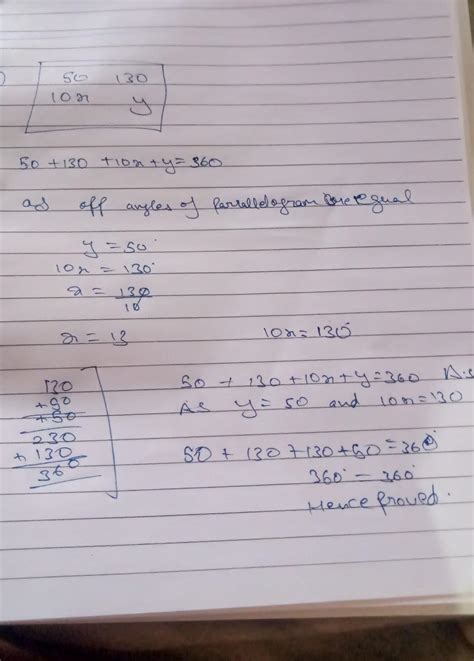 50 130
10x y
50 + 130 + 10x + y = 360
as opp angles of parralldogram are equal
y = 50°
10x = 130°
x = 130
10
x = 13 10x = 130°
130
+ 50
230
+ 130
360
50 + 130 + 10x + y = 360 A.s
As y = 50 and 10x = 130
50 + 130 + 130 + 50 = 360°
360° - 360°
Hence proved.